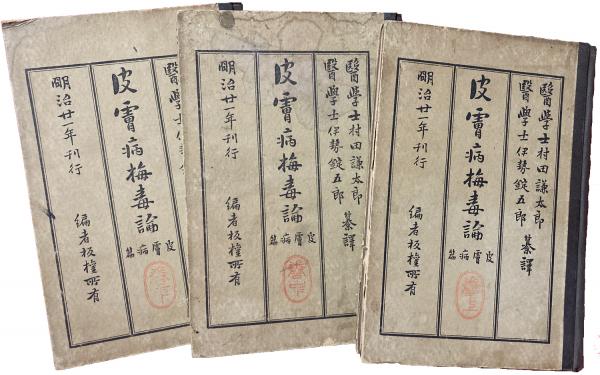 醫學士村田謙太郎
醫學士伊勢錠五郎
纂譯
皮膚病梅毒論
皮膚病篇
卷之上
明治廿一年刊行 編者板權所有
醫學士村田謙太郎
醫學士伊勢錠五郎
纂譯
皮膚病梅毒論
皮膚病篇
卷之中
明治廿一年刊行 編者板權所有
醫學士伊勢
皮膚病梅毒論
皮膚病篇
明治廿一年刊行 編者板權所有